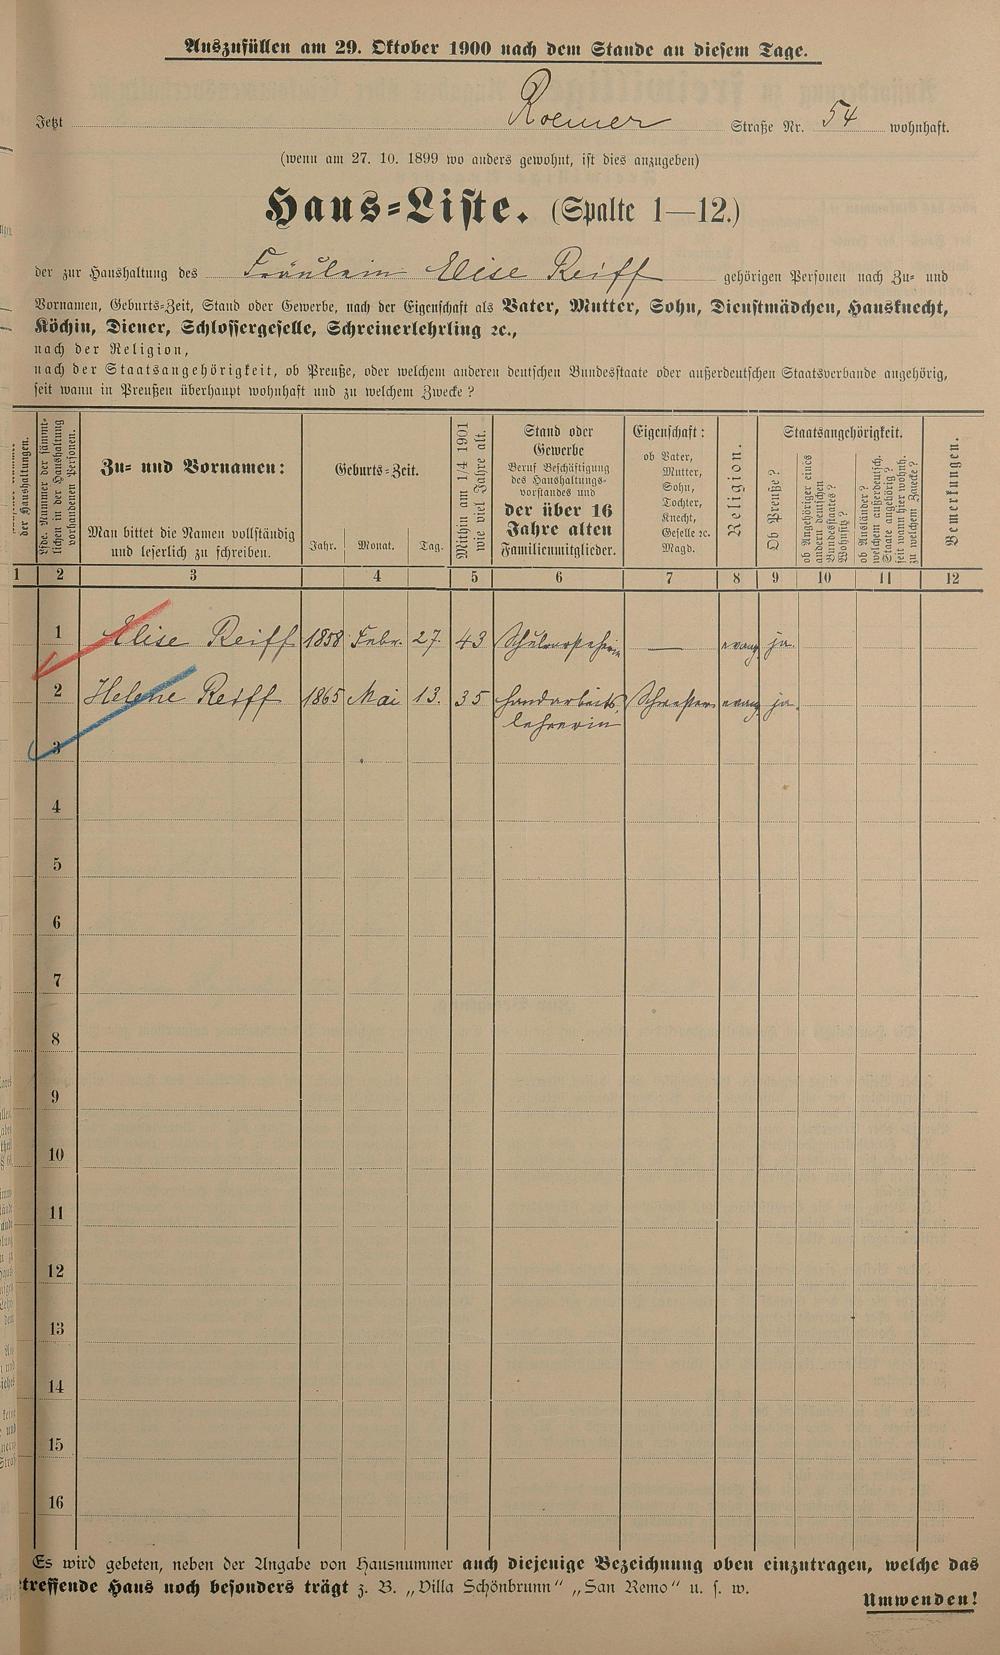 Auszufüllen am 29. Oktober 1900 nach dem Stande an diesem Tage.
Jetzt Roemer Straße Nr. 54 wohnhaft.
(wenn am 27. 10. 1899 wo anders gewohnt, ist dies anzugeben)
Haus-Liste. (Spalte 1—12.)
der zur Haushaltung des Fräulein Elise Reiff gehörigen Personen nach Zu- und
Vornamen, Geburts-Zeit, Stand oder Gewerbe, nach der Eigenschaft als Vater, Mutter, Sohn, Dienstmädchen, Hausknecht,
Köchin, Diener, Schlossergeselle, Schreinerlehrling ꝛc.,
nach der Religion,
nach der Staatsangehörigkeit, ob Preuße, oder welchem anderen deutschen Bundesstaate oder außerdeutschen Staatsverbande angehörig,
seit wann in Preußen überhaupt wohnhaft und zu welchem Zwecke?
der Haushaltungen.
lfde. Nummer der sämmt-
lichen in der Haushaltung
vorhandenen Personen.
Zu- und Vornamen:
Man bittet die Namen vollständig
und leserlich zu schreiben.
Geburts-Zeit.
Jahr. Monat. Tag.
Mithin am 1/4 1901
wie viel Jahre alt.
Stand oder
Gewerbe
Beruf Beschäftigung
des Haushaltungs-
vorstandes und
der über 16
Jahre alten
Familienmitglieder.
Eigenschaft:
ob Vater,
Mutter,
Sohn,
Tochter,
Knecht,
Geselle ꝛc.
Magd.
Religion.
Staatsangehörigkeit.
Ob Preuße?
ob Angehöriger eines
andern deutschen
Bundesstaates?
Wohnsitz?
ob Ausländer?
welchem außerdeutsch.
Staate angehörig?
seit wann hier wohnh.
zu welchem Zwecke?
Bemerkungen.
1 2 3 4 5 6 7 8 9 10 11 12
1 Elise Reiff 1858 Febr. 27. 43 Schulvorsteherin — evang. ja.
2 Helene Reiff 1865 Mai 13. 35 Handarbeits-
lehrerin Schwester evang. ja.
3
4
5
6
7
8
9
10
11
12
13
14
15
16
Es wird gebeten, neben der Angabe von Hausnummer auch diejenige Bezeichnung oben einzutragen, welche das
treffende Haus noch besonders trägt z. B. „Villa Schönbrunn“ „San Remo“ u. s. w.
Umwenden!